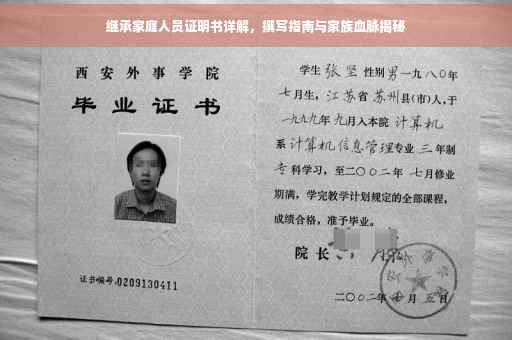 继承家庭人员证明书详解，撰写指南与家族血脉揭秘
西安外事学院
毕业证书
证书编号:0209130411
学生 张坚 性别男一九八〇年
七月生，江苏省苏州县(市)人，于
一九九九年九月入本院 计算机
系 计算机信息管理专业 三年制
专科学习，至二〇〇二年七月修业
期满，学完教学计划规定的全部课程，
成绩合格，准予毕业。
院长
二〇〇二年 月五日